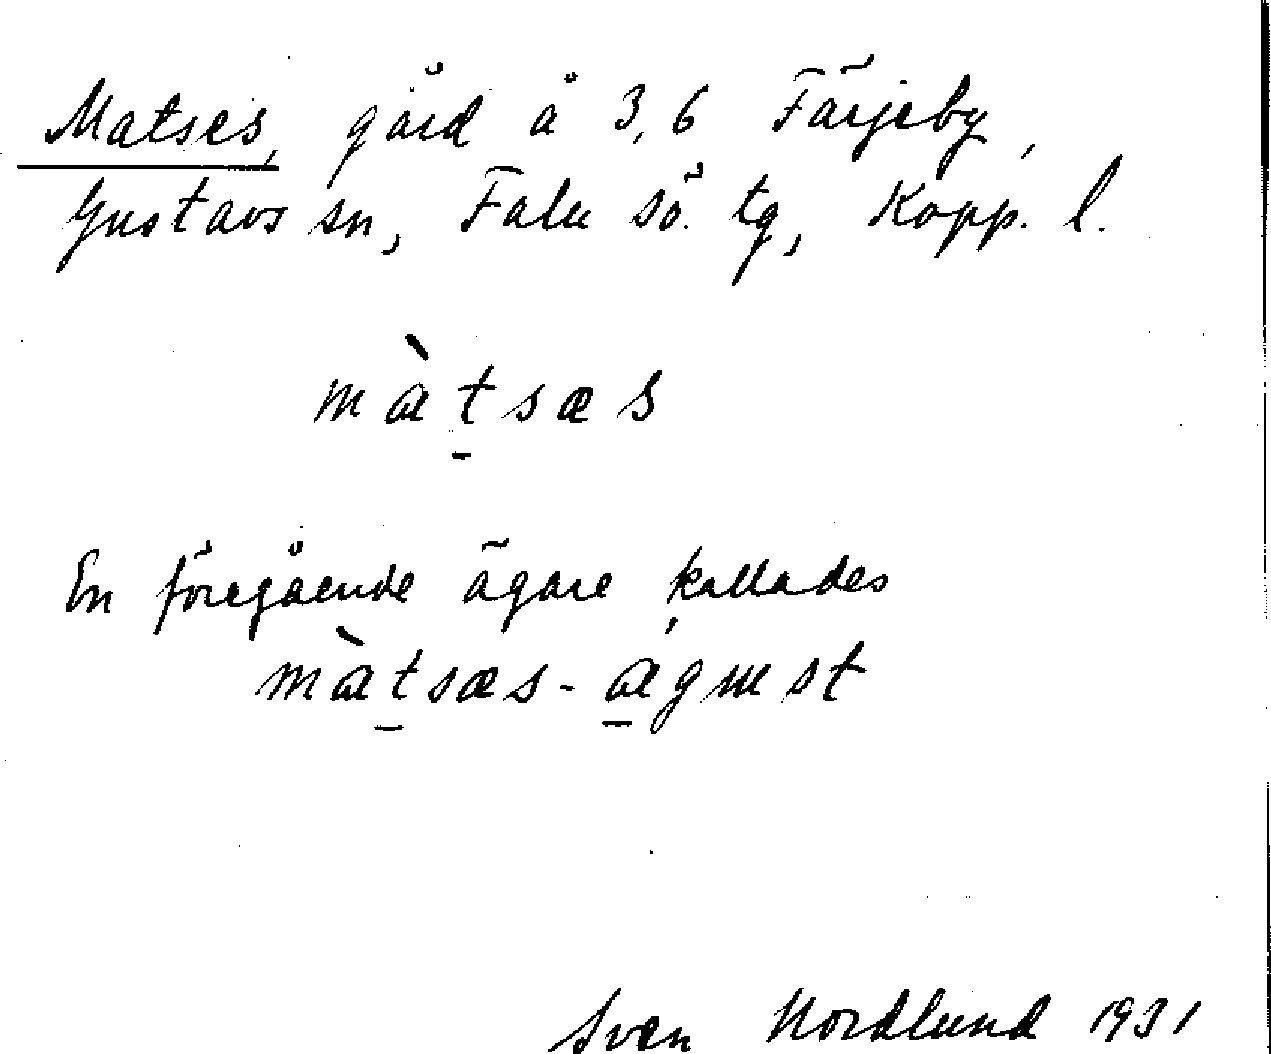 Matses, gård å 3,6 Färjeby,
Gustavs sn, Falu sö. tg, Kopp. l.
màt̠sæs
En föregående ägare kallades
màt̠sæs-a̠gɯst
Sven Nordlund 1931